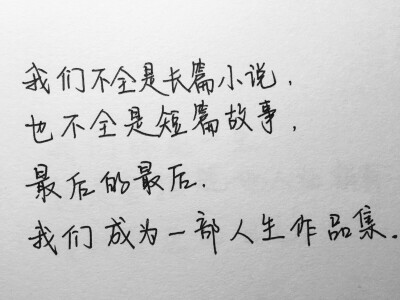 我们不全是长篇小说，
也不全是短篇故事，
最后的最后.
我们成为一部人生作品集.